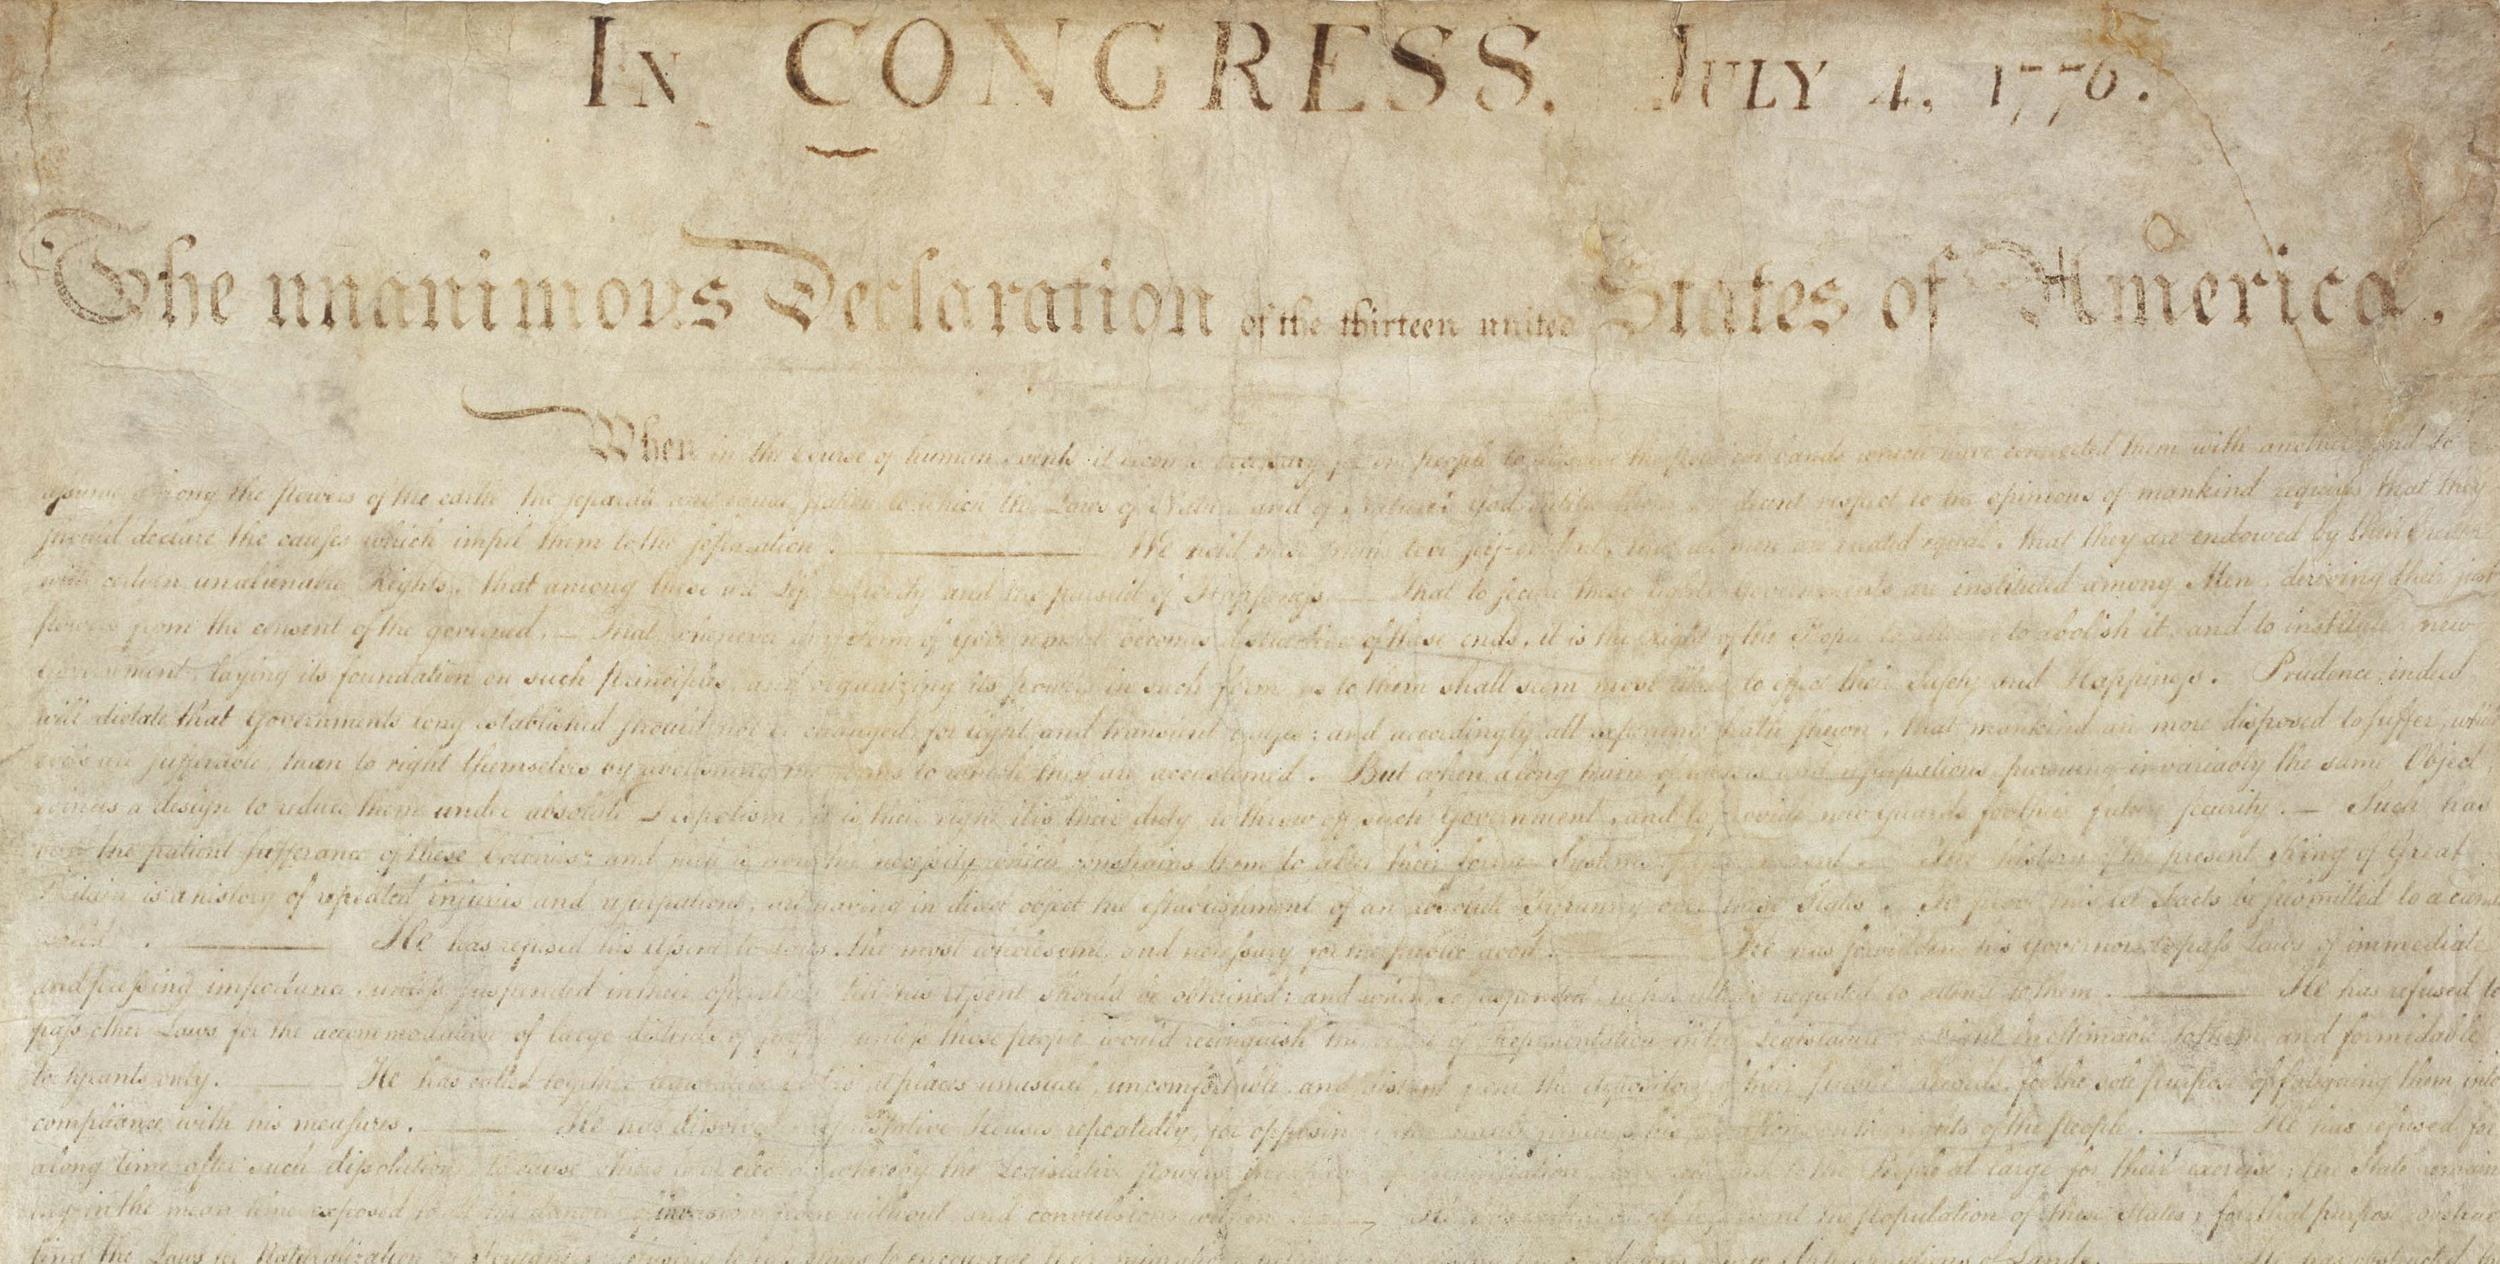 IN CONGRESS. JULY 4, 1776.
The unanimous Declaration of the thirteen united States of America.
When in the Course of human events it becomes necessary for one people to dissolve the political bands which have connected them with another and to
assume among the powers of the earth the separate and equal station to which the Laws of Nature and of Nature's God entitle them a decent respect to the opinions of mankind requires that they
should declare the causes which impel them to the separation. We hold these truths to be self-evident, that all men are created equal, that they are endowed by their Creator
with certain unalienable Rights, that among these are Life, Liberty and the pursuit of Happiness.— That to secure these rights, Governments are instituted among Men, deriving their just
powers from the consent of the governed,— That whenever any Form of Government becomes destructive of these ends, it is the Right of the People to alter or to abolish it, and to institute new
Government, laying its foundation on such principles, and organizing its powers in such form, as to them shall seem most likely to effect their Safety and Happiness. Prudence, indeed
will dictate that Governments long established should not be changed for light and transient causes; and accordingly all experience hath shewn, that mankind are more disposed to suffer, while
evils are sufferable, than to right themselves by abolishing the forms to which they are accustomed. But when a long train of abuses and usurpations, pursuing invariably the same Object
evinces a design to reduce them under absolute Despotism, it is their right, it is their duty, to throw off such Government, and to provide new Guards for their future security.— Such has
been the patient sufferance of these Colonies; and such is now the necessity which constrains them to alter their former Systems of Government. The history of the present King of Great
Britain is a history of repeated injuries and usurpations, all having in direct object the establishment of an absolute Tyranny over these States. To prove this, let Facts be submitted to a candid
world. He has refused his Assent to Laws, the most wholesome and necessary for the public good. He has forbidden his Governors to pass Laws of immediate
and pressing importance, unless suspended in their operation till his Assent should be obtained; and when so suspended, he has utterly neglected to attend to them. He has refused to
pass other Laws for the accommodation of large districts of people, unless those people would relinquish the right of Representation in the Legislature, a right inestimable to them and formidable
to tyrants only. He has called together legislative bodies at places unusual, uncomfortable, and distant from the depository of their public Records, for the sole purpose of fatiguing them into
compliance with his measures. He has dissolved Representative Houses repeatedly, for opposing with manly firmness his invasions on the rights of the people. He has refused for
a long time, after such dissolutions, to cause others to be elected; whereby the Legislative powers, incapable of Annihilation, have returned to the People at large for their exercise; the State remain
ing in the mean time exposed to all the dangers of invasion from without, and convulsions within. He has endeavoured to prevent the population of these States; for that purpose obstruc
ting the Laws for Naturalization of Foreigners; refusing to pass others to encourage their migrations hither, and raising the conditions of new Appropriations of Lands. He has obstructed